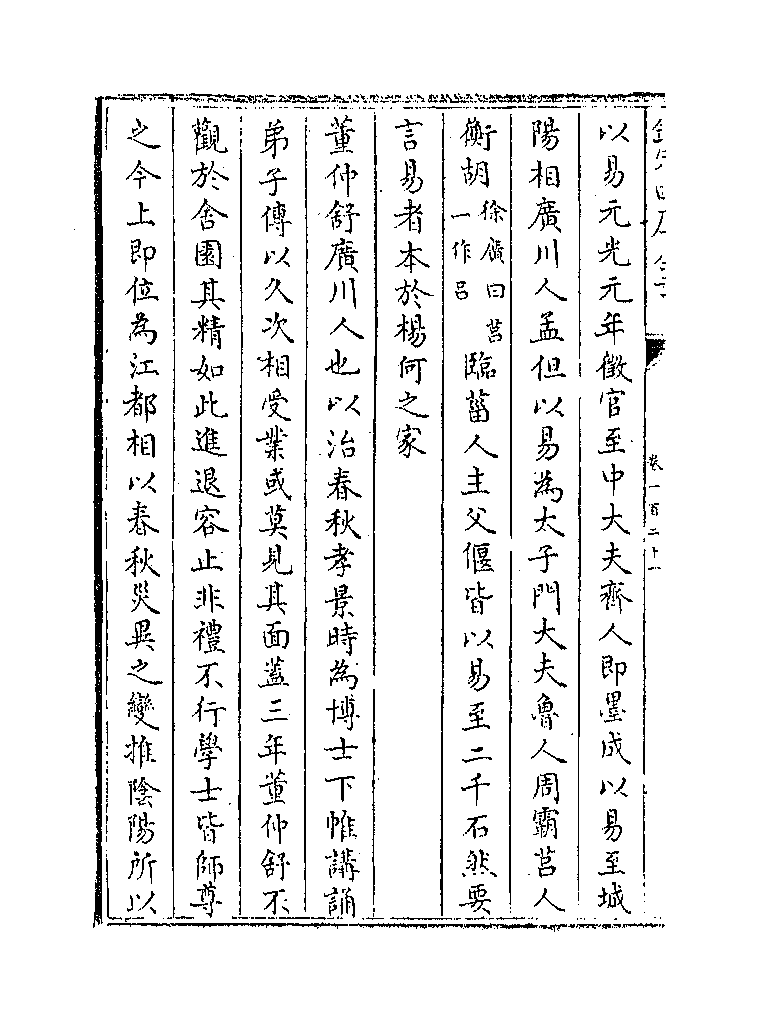 以易元光元年徵官至中大夫齊人即墨成以易至城
陽相廣川人孟但以易為太子門大夫魯人周霸莒人
衡胡徐廣曰莒一作呂臨菑人主父偃皆以易至二千石然要
言易者本於楊何之家
董仲舒廣川人也以治春秋孝景時為博士下帷講誦
弟子傳以久次相受業或莫見其面蓋三年董仲舒不
觀於舍園其精如此進退容止非禮不行學士皆師尊
之今上即位為江都相以春秋災異之變推陰陽所以
卷一百二十一